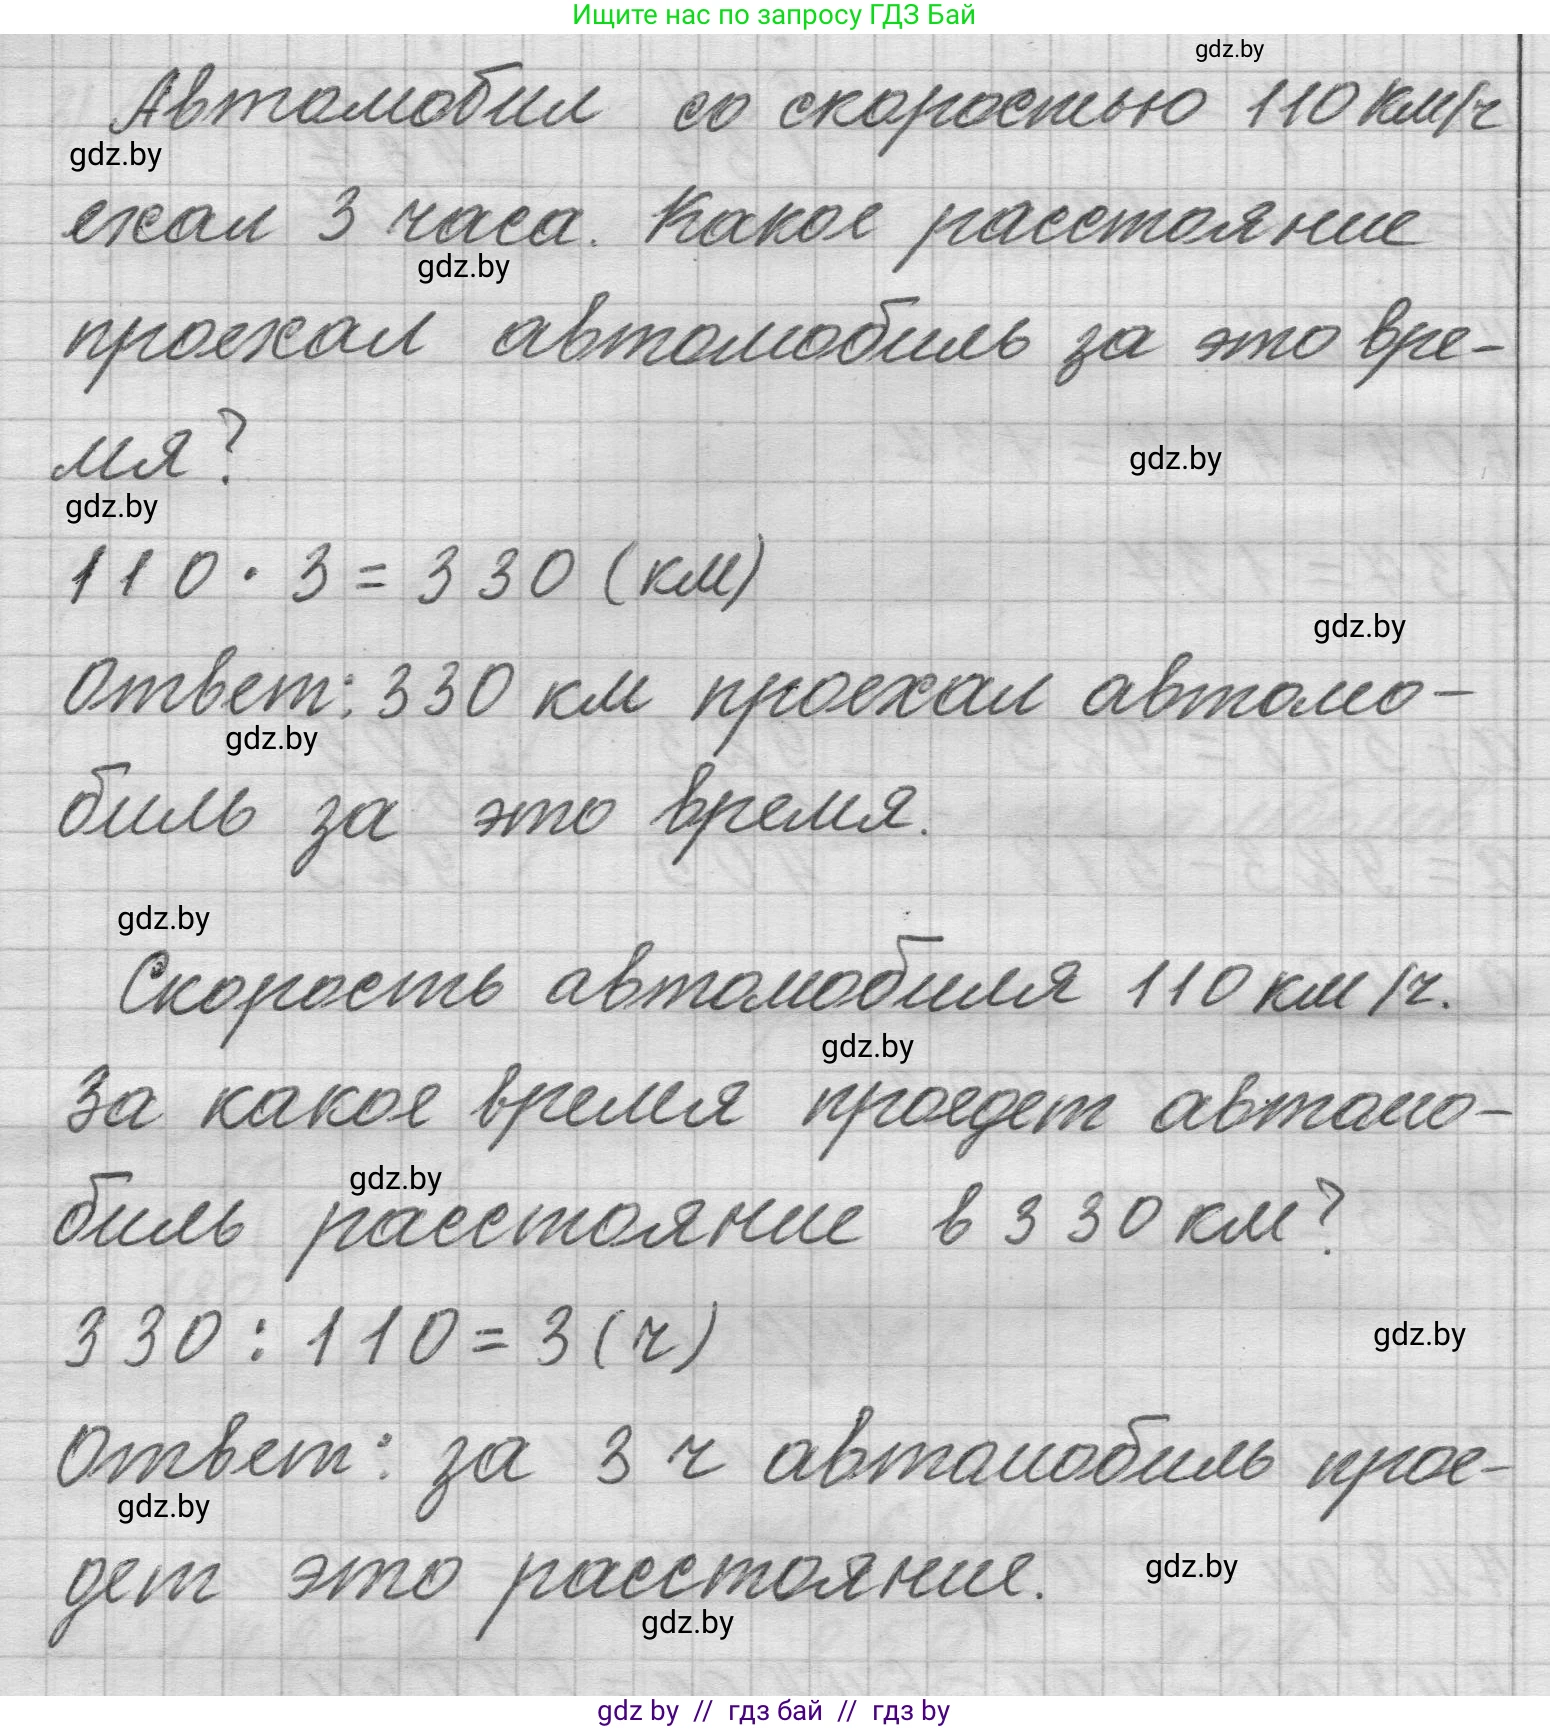 Ищите нас по запросу ГДЗ Бай
gdz.by
Автомобил со скоростью 110 км/ч
gdz.by
ехал 3 часа. Какое расстояние
gdz.by
проехал автомобиль за это вре-
мя?
gdz.by
gdz.by
110 · 3 = 330 (км)
gdz.by
Ответ: 330 км проехал автомо-
gdz.by
биль за это время.
gdz.by
Скорость автомобиля 110 км/ч.
gdz.by
За какое время проедет автомо-
gdz.by
биль расстояние в 330 км?
330 : 110 = 3 (ч)
gdz.by
Ответ: за 3 ч автомобиль прое-
gdz.by
дет это расстояние.
gdz.by
gdz.by
gdz by // гдз бай // гдз by